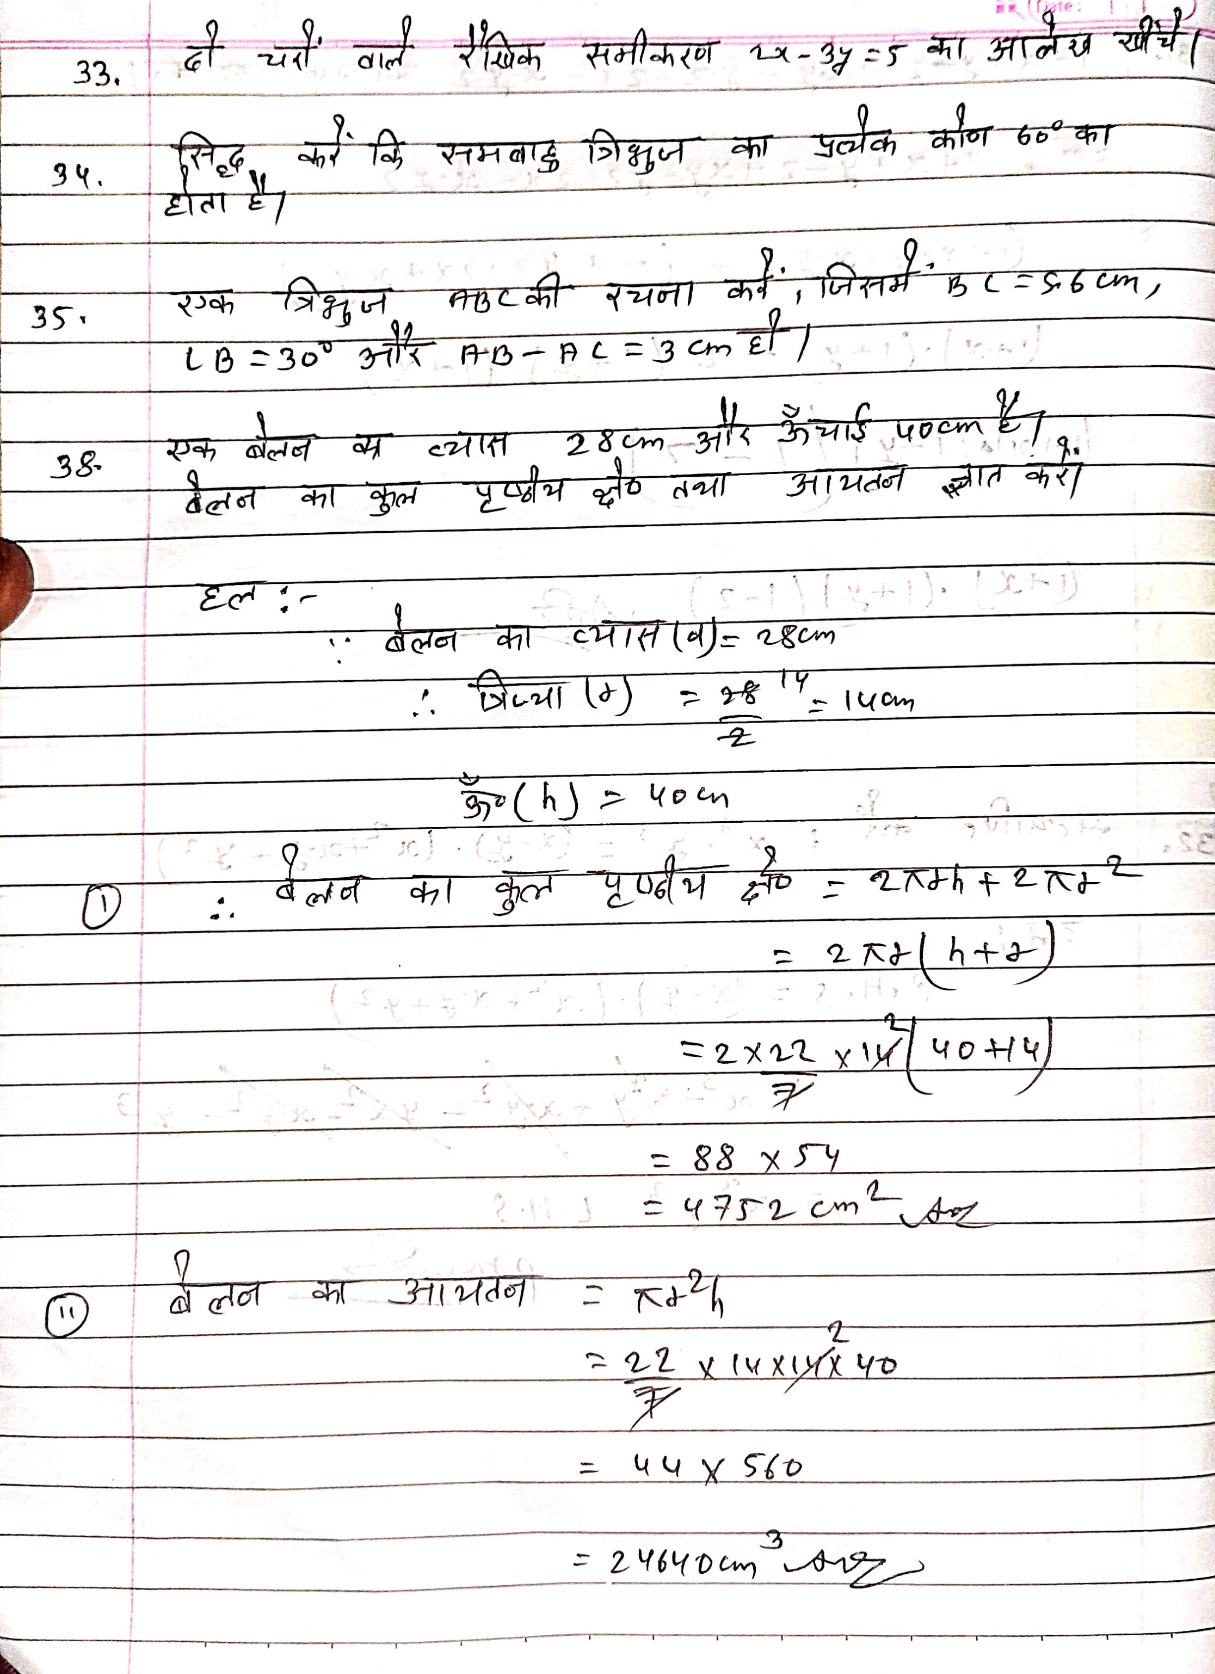 33. दो चरों वाले रैखिक समीकरण 2x - 3y = 5 का आलेख खींचे।
34. सिद्ध करें कि समबाहु त्रिभुज का प्रत्येक कोण 60° का
होता है।
35. एक त्रिभुज ABC की रचना करें, जिसमें BC = 5.6 cm,
∠B = 30° और AB - AC = 3 cm हो।
38. एक बेलन का व्यास 28 cm और ऊँचाई 40 cm है।
बेलन का कुल पृष्ठीय क्षे० तथा आयतन ज्ञात करें।
हल :-
∵ बेलन का व्यास (d) = 28 cm
∴ त्रिज्या (r) = 28/2 14 = 14 cm
ऊँ० (h) = 40 cm
(i) ∴ बेलन का कुल पृष्ठीय क्षे० = 2πrh + 2πr²
= 2πr (h + r)
= 2 × 22/7 × 14 2 (40 + 14)
= 88 × 54
= 4752 cm² Ans
(ii) बेलन का आयतन = πr²h
= 22/7 × 14 × 14 2 × 40
= 44 × 560
= 24640 cm³ Ans